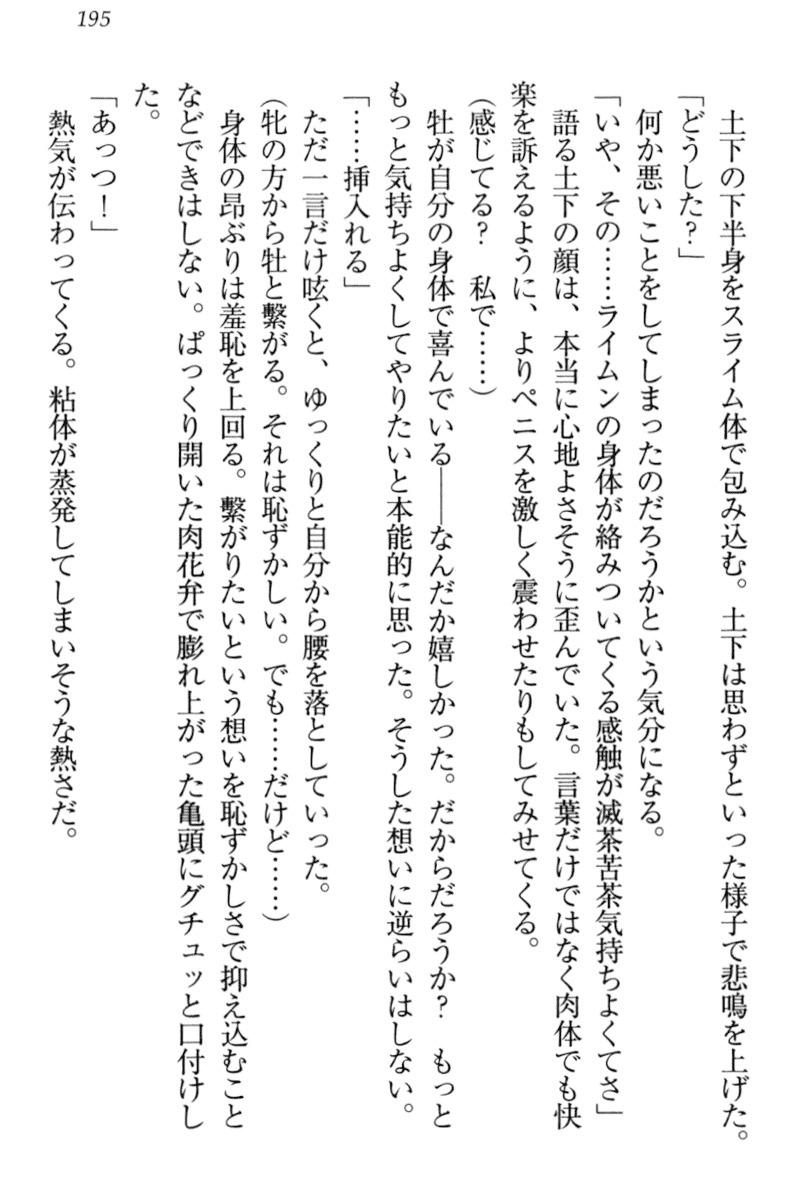 195
土下の下半身をスライム体で包み込む。土下は思わずといった様子で悲鳴を上げた。
「どうした？」
何か悪いことをしてしまったのだろうかという気分になる。
「いや、その……ライムンの身体が絡みついてくる感触が滅茶苦茶気持ちよくてさ」
語る土下の顔は、本当に心地よさそうに歪んでいた。言葉だけではなく肉体でも快
楽を訴えるように、よりペニスを激しく震わせたりもしてみせてくる。
（感じてる？　私で……）
牡が自分の身体で喜んでいる――なんだか嬉しかった。だからだろうか？　もっと
もっと気持ちよくしてやりたいと本能的に思った。そうした想いに逆らいはしない。
「……挿入れる」
ただ一言だけ呟くと、ゆっくりと自分から腰を落としていった。
（牝の方から牡と繋がる。それは恥ずかしい。でも……だけど……）
身体の昂ぶりは羞恥を上回る。繋がりたいという想いを恥ずかしさで抑え込むこと
などできはしない。ぱっくり開いた肉花弁で膨れ上がった亀頭にグチュッと口付けし
た。
「あっつ！」
熱気が伝わってくる。粘体が蒸発してしまいそうな熱さだ。